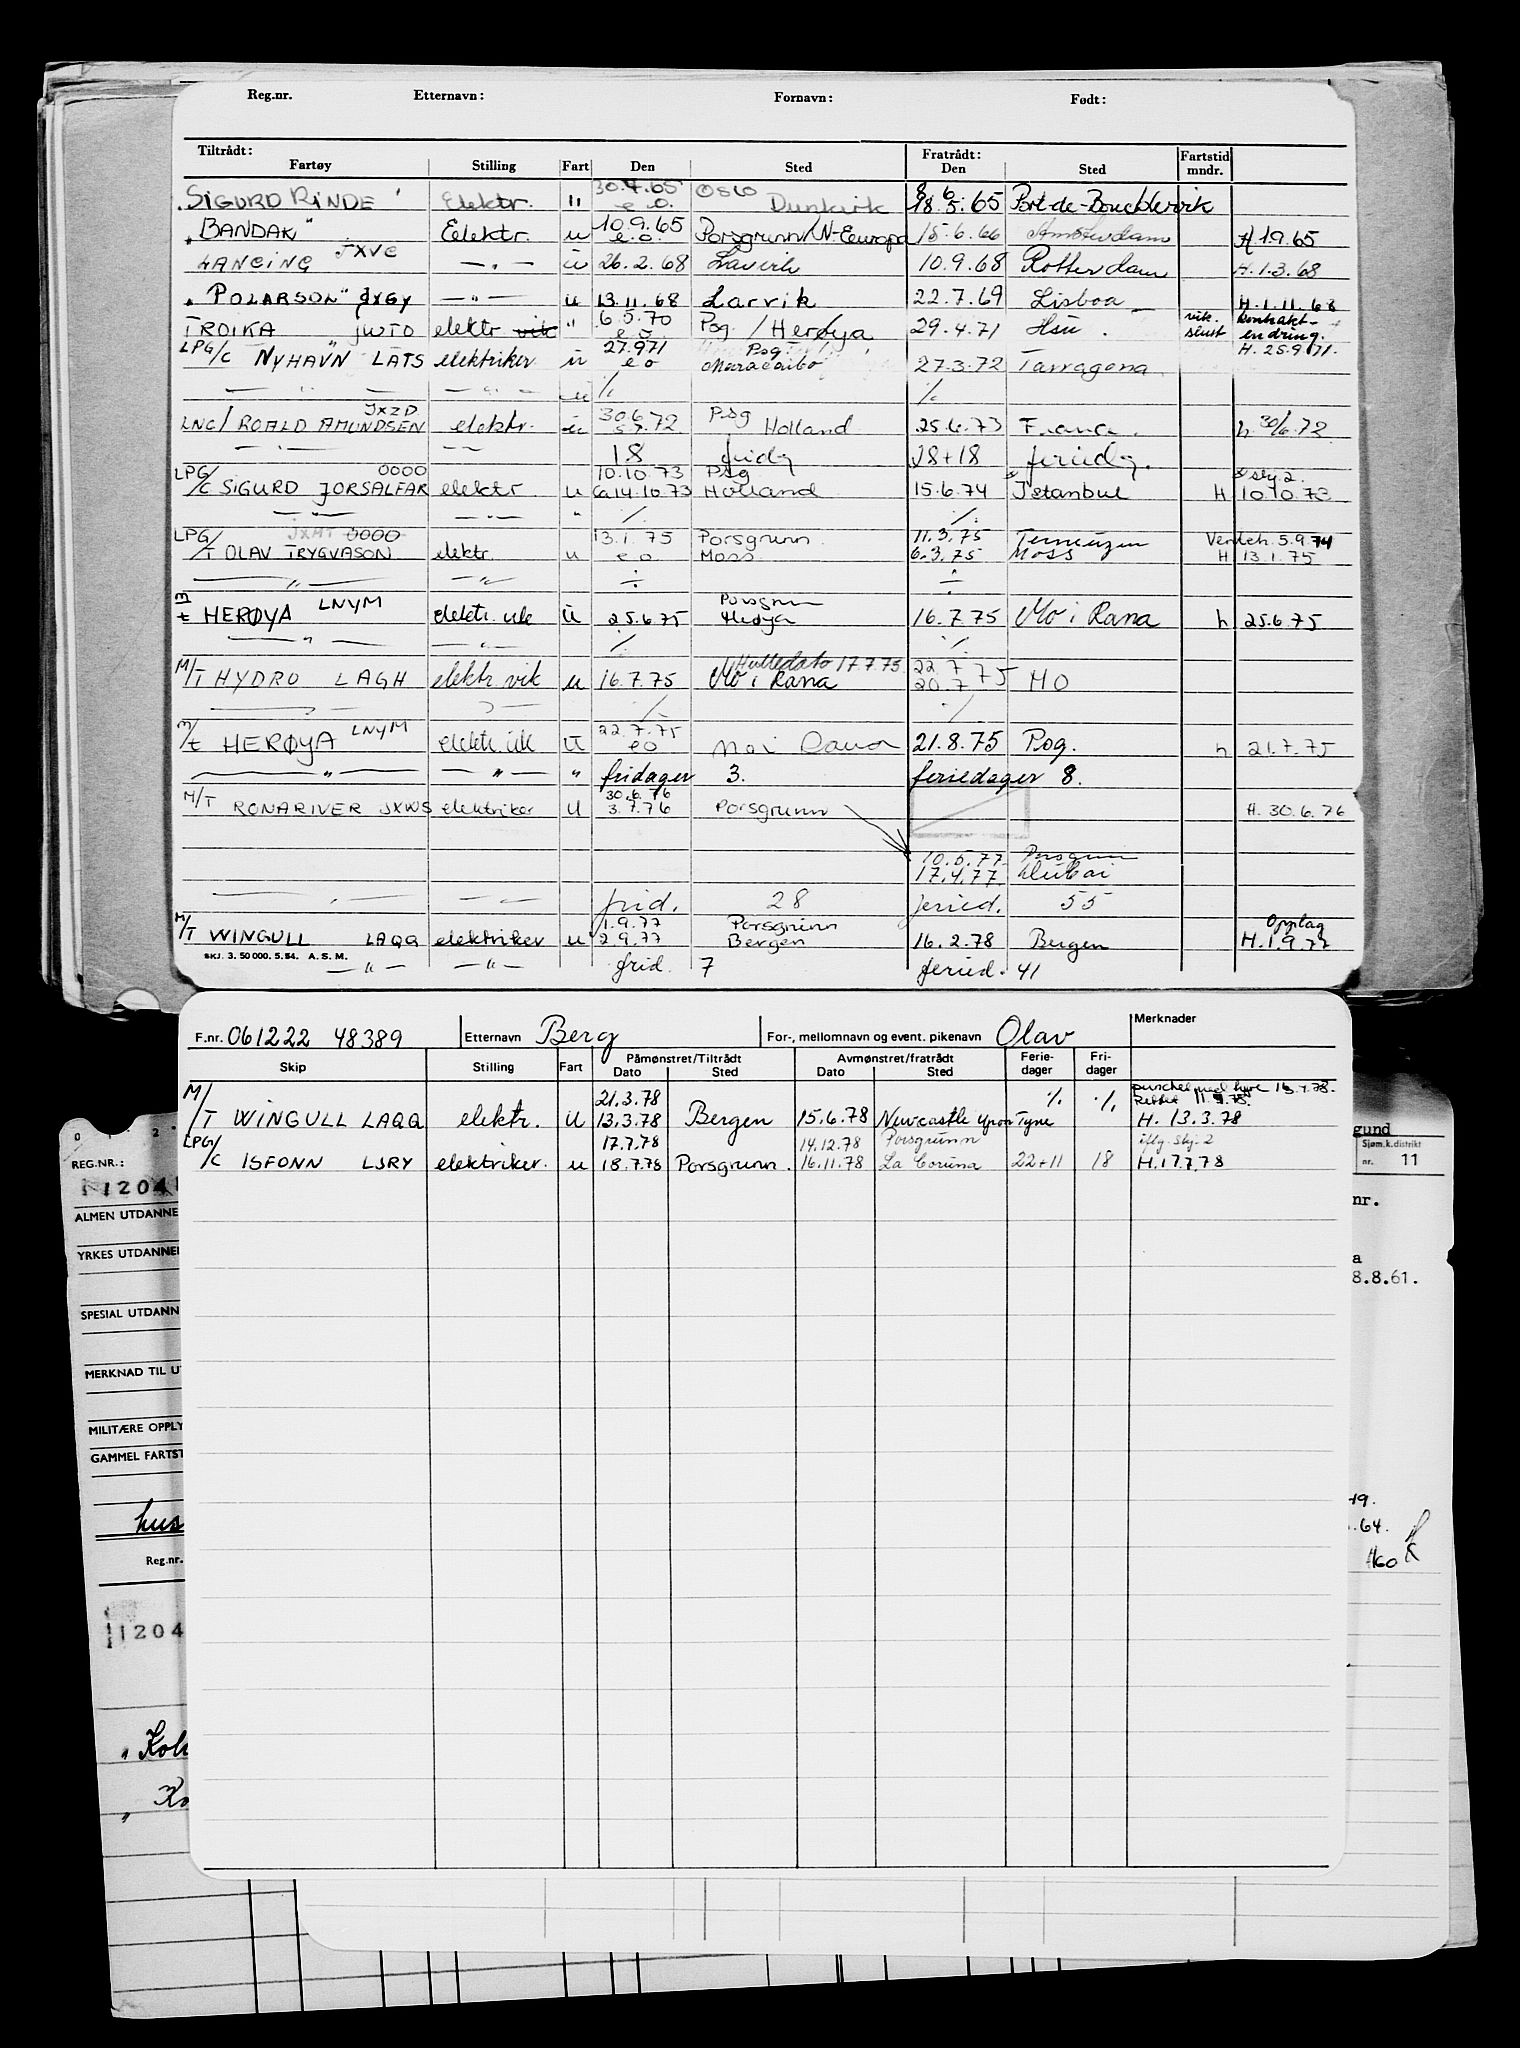 Reg.nr. Etternavn: Fornavn: Født:
Tiltrådt: Fratrådt: Fartstid
Fartøy Stilling Fart Den Sted Den Sted mndr.
30.4.65 Oslo 8 6
"SIGURD RINDE" Elektr. " e.o. Dunkirk 18.5.65 Port-de-Bouc
"BANDAK" Elektr. u 10.9.65 e.o. Porsgrunn/N-Europa 15.6.66 Amsterdam H 1.9.65
LANCING JXVC -"- u 26.2.68 Larvik 10.9.68 Rotterdam H.1.3.68
"POLARSON" JXGY -"- u 13.11.68 Larvik 22.7.69 Lisboa H.1.11.68
TROIKA JWTO elektr. vik " 6.5.70 e.o. Psg. / Herøya 29.4.71 vik. slutt kontrakt-endring.
LPG/C NYHAVN LATS elektriker u 27.9.71 e o Psg. Maracaibo 27.3.72 Tarragona H. 25.9.71.
-"- -"- u % %
LNG/ ROALD AMUNDSEN JXZD elektr. u 30.6.72 Psg Holland 25.6.73 h 30/6.72
-"- -"- 18 fridg 18+18 feriedg.
LPG/C SIGURD JORSALFAR 0000 elektr u 10.10.73 ca 14.10.73 Psg Holland 15.6.74 Istanbul H 10.10.73
-"- -"- " % %
LPG/T OLAV TRYGVASON JXAT 0000 elektr. u 13.1.75 e o Porsgrunn Moss 11.3.75 6.3.75 Terneuzen Moss 5.9.74 H 13.1.75
-"- -"- ÷ ÷
M/t HERØYA LNYM elektr. vik u 25.6.75 Porsgrunn Herøya 16.7.75 Mo i Rana h 25.6.75
-"- -"- % %
M/T HYDRO LAGH elektr. vik u 16.7.75 Mo i Rana Hulledato 17.7.75 22.7 20.7 75 MO
-"- -"- % %
M/t HERØYA LNYM elektr. vik u 22.7.75 e o Mo i Rana 21.8.75 Psg. h 21.7.75
-"- -"- " fridager 3. feriedager 8.
M/T RONARIVER JXWS elektriker u 30.6.76 3.7.76 Porsgrunn H. 30.6.76
10.5.77 Porsgrunn
17.4.77 Dubai
-"- -"- frid. 28 feried. 55
M/T WINGULL LAQQ elektriker u 1.9.77 2.9.77 Porsgrunn Bergen 16.2.78 Bergen Opplag H.1.9.77
SKJ. 3. 50 000. 5.54. A.S.M.
-"- -"- frid. 7 feried. 41
F.nr. 061222 48389 Etternavn Berg For-, mellomnavn og event. pikenavn Olav Merknader
Skip Stilling Fart Påmønstret/Tiltrådt Avmønstret/fratrådt Ferie-dager Fri-dager
Dato Sted Dato Sted
M/T WINGULL LAQQ elektr. u 21.3.78 13.3.78 Bergen 15.6.78 Newcastle upon Tyne % % H. 13.3.78
LPG/C ISFONN LJRY elektriker. u 17.7.78 18.7.78 Porsgrunn. 14.12.78 16.11.78 Porsgrunn La Coruna 22+11 18 iflg. skj. 2 H.17.7.78
0 1 2
REG.NR.:
11204
ALMEN UTDANNE
YRKES UTDANNE
SPESIAL UTDANN
MERKNAD TIL U
MILITÆRE OPPLY
GAMMEL FARTST
Reg.nr.
11204
gund
Sjøm.k.distrikt
nr. 11
nr.
a
8.8.61.
.64.